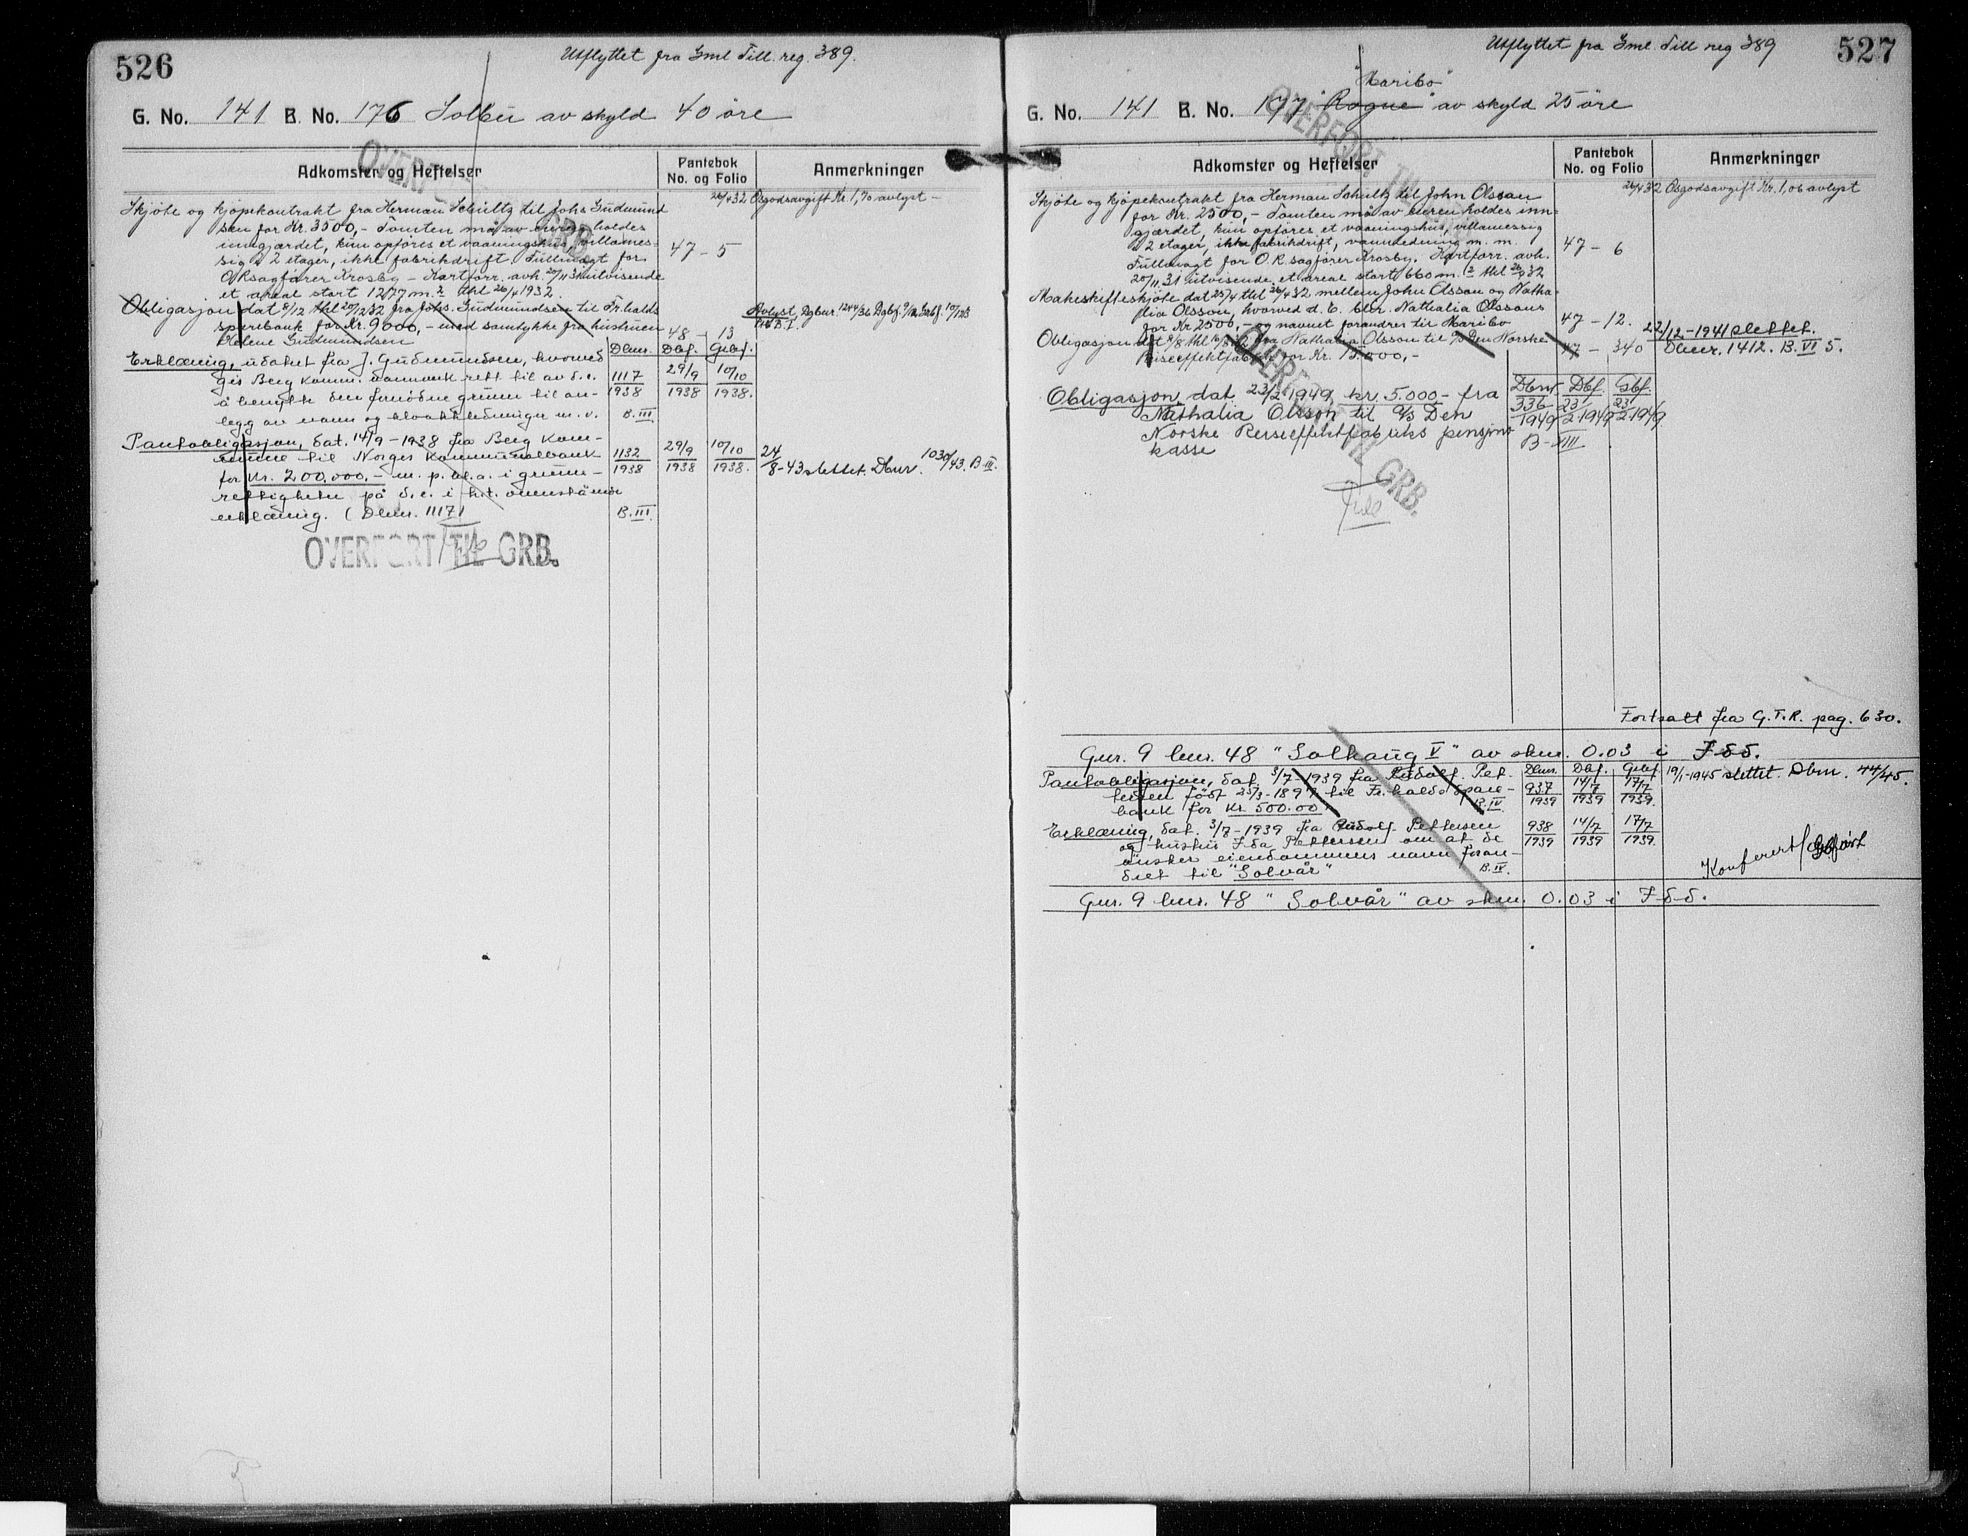 526
Utflyttet fra Gml Till. reg. 389.
G. No. 141 B. No. 176 Solbu av skyld 40 øre
Adkomster og Heftelser
Pantebok
No. og Folio
Anmerkninger
26/4 32 Osgodsavgift Kr. 1,70 avlyst –
Skjøte og kjøpekontrakt fra Herman Schultz til Johs Gudmund
sen for Kr. 3500,- Tomten må av eieren holdes
inngjærdet, kun opføres et vaaningshus, villames-
sig i 2 etager, ikke fabrikdrift Fullmagt for
47 – 5
O.R.sagfører Krosby – Kartforr. avh. 20/11 31 utvisende
et areal stort 1277 m.2 thl 26/4 1932.
Obligasjon dat 8/12 thl 20/12 32 fra Johs. Gudmundsen til Fr.halds
sparebank for Kr. 9000,- med samtykke fra hustruen
Helene Gudmundsen
48 – 13
Avlyst Dgbnr. 1244/36 Dgbf. 9/12 Grbf. 10/12
B. I.
Dbnr. Dbf. Grbf.
Erklæring, utstedt fra J. Gudmundsen, hvorved
gis Berg komm. vannverk rett til av d.e.
å benytte den fornødne grunn til an-
legg av vann og kloakkledninger m.v.
1117/1938 29/9 1938 10/10 1938.
B. III
Pantobligasjon, dat. 14/9 – 1938 fra Berg kom-
mune til Norges Kommunalbank
for kr. 200.000,- m. p. bl. a. i grunn-
rettigheter på d.e. i h.t. ovenstående
erklæring. (Dbnr. 1117)
1132/1938 29/9 1938 10/10 1938.
B. III
24/8-43 slettet. Dbnr. 1030/43. B. III.
OVERFØRT TIL GRB.
OVERFØRT TIL GRB.
527
Utflyttet fra Gml. Till reg 389
"Haribo"
G. No. 141 B. No. 177 "Rogne" av skyld 25 øre
Adkomster og Heftelser
Pantebok
No. og Folio
Anmerkninger
26/4 32 Osgodsavgift Kr. 1,06 avlyst
Skjøte og kjøpekontrakt fra Herman Schultz til John Olsson
for Kr. 2500,- Tomten må av eieren holdes inn-
gjærdet, kun opføres et vaaningshus, villamessig
i 2 etager, ikke fabrikdrift, vannledning m. m.
47 – 6
Fullmagt for O.R. sagfører Krosby. Kartforr. avh.
20/11 31 utvisende et areal stort 660 m.2 thl 26/4 32
Makeskifteskjøte dat 25/4 thl 26/4 32 mellem John Olsson og Natha-
lia Olsson, hvorved d. E. blir Nathalia Olssons
for Kr 2500,- og navnet forandres til Haribo
47 – 12.
Obligasjon dat 8/8 thl fra Nathalia Olsson til A/S Den Norske
Reiseeffektfabrik for Kr. 15.000,-
47 – 340
22/12 – 1941 slettet.
Dbnr. 1412. B. VI 5.
Dbnr Dbf. Gbf.
Obligasjon dat 23/2 1949, kr. 5.000- fra
Nathalia Olsson til A/S Den
Norske Reiseeffektfabriks pensjons
kasse
336/1949 23/2 1949 23/2 1949
B – VIII
OVERFØRT TIL GRB.
OVERFØRT TIL
Fortsatt fra G.T.R. pag. 630.
Gnr. 9 bnr. 48 "Solhaug V" av skm. 0.03 i Idd.
Dbnr. Dbf. Grbf.
Pantobligasjon, dat. 3/7 – 1939 fra Rudolf Pet-
tersen født 25/3-1897 til Fr.halds spare-
bank for kr. 500.00
937/1939 14/7 1939 17/7 1939.
B. IV.
19/1-1945 slettet. Dbnr. 44/45.
Erklæring, dat. 3/7 – 1939 fra Rudolf Pettersen
og hustru Ida Pettersen om at de
ønsker eiendommens navn foran-
dret til "Solvår"
938/1939 14/7 1939 17/7 1939.
B. IV.
Konferert
Gnr. 9 bnr. 48 "Solvår" av skm. 0.03 i Idd.